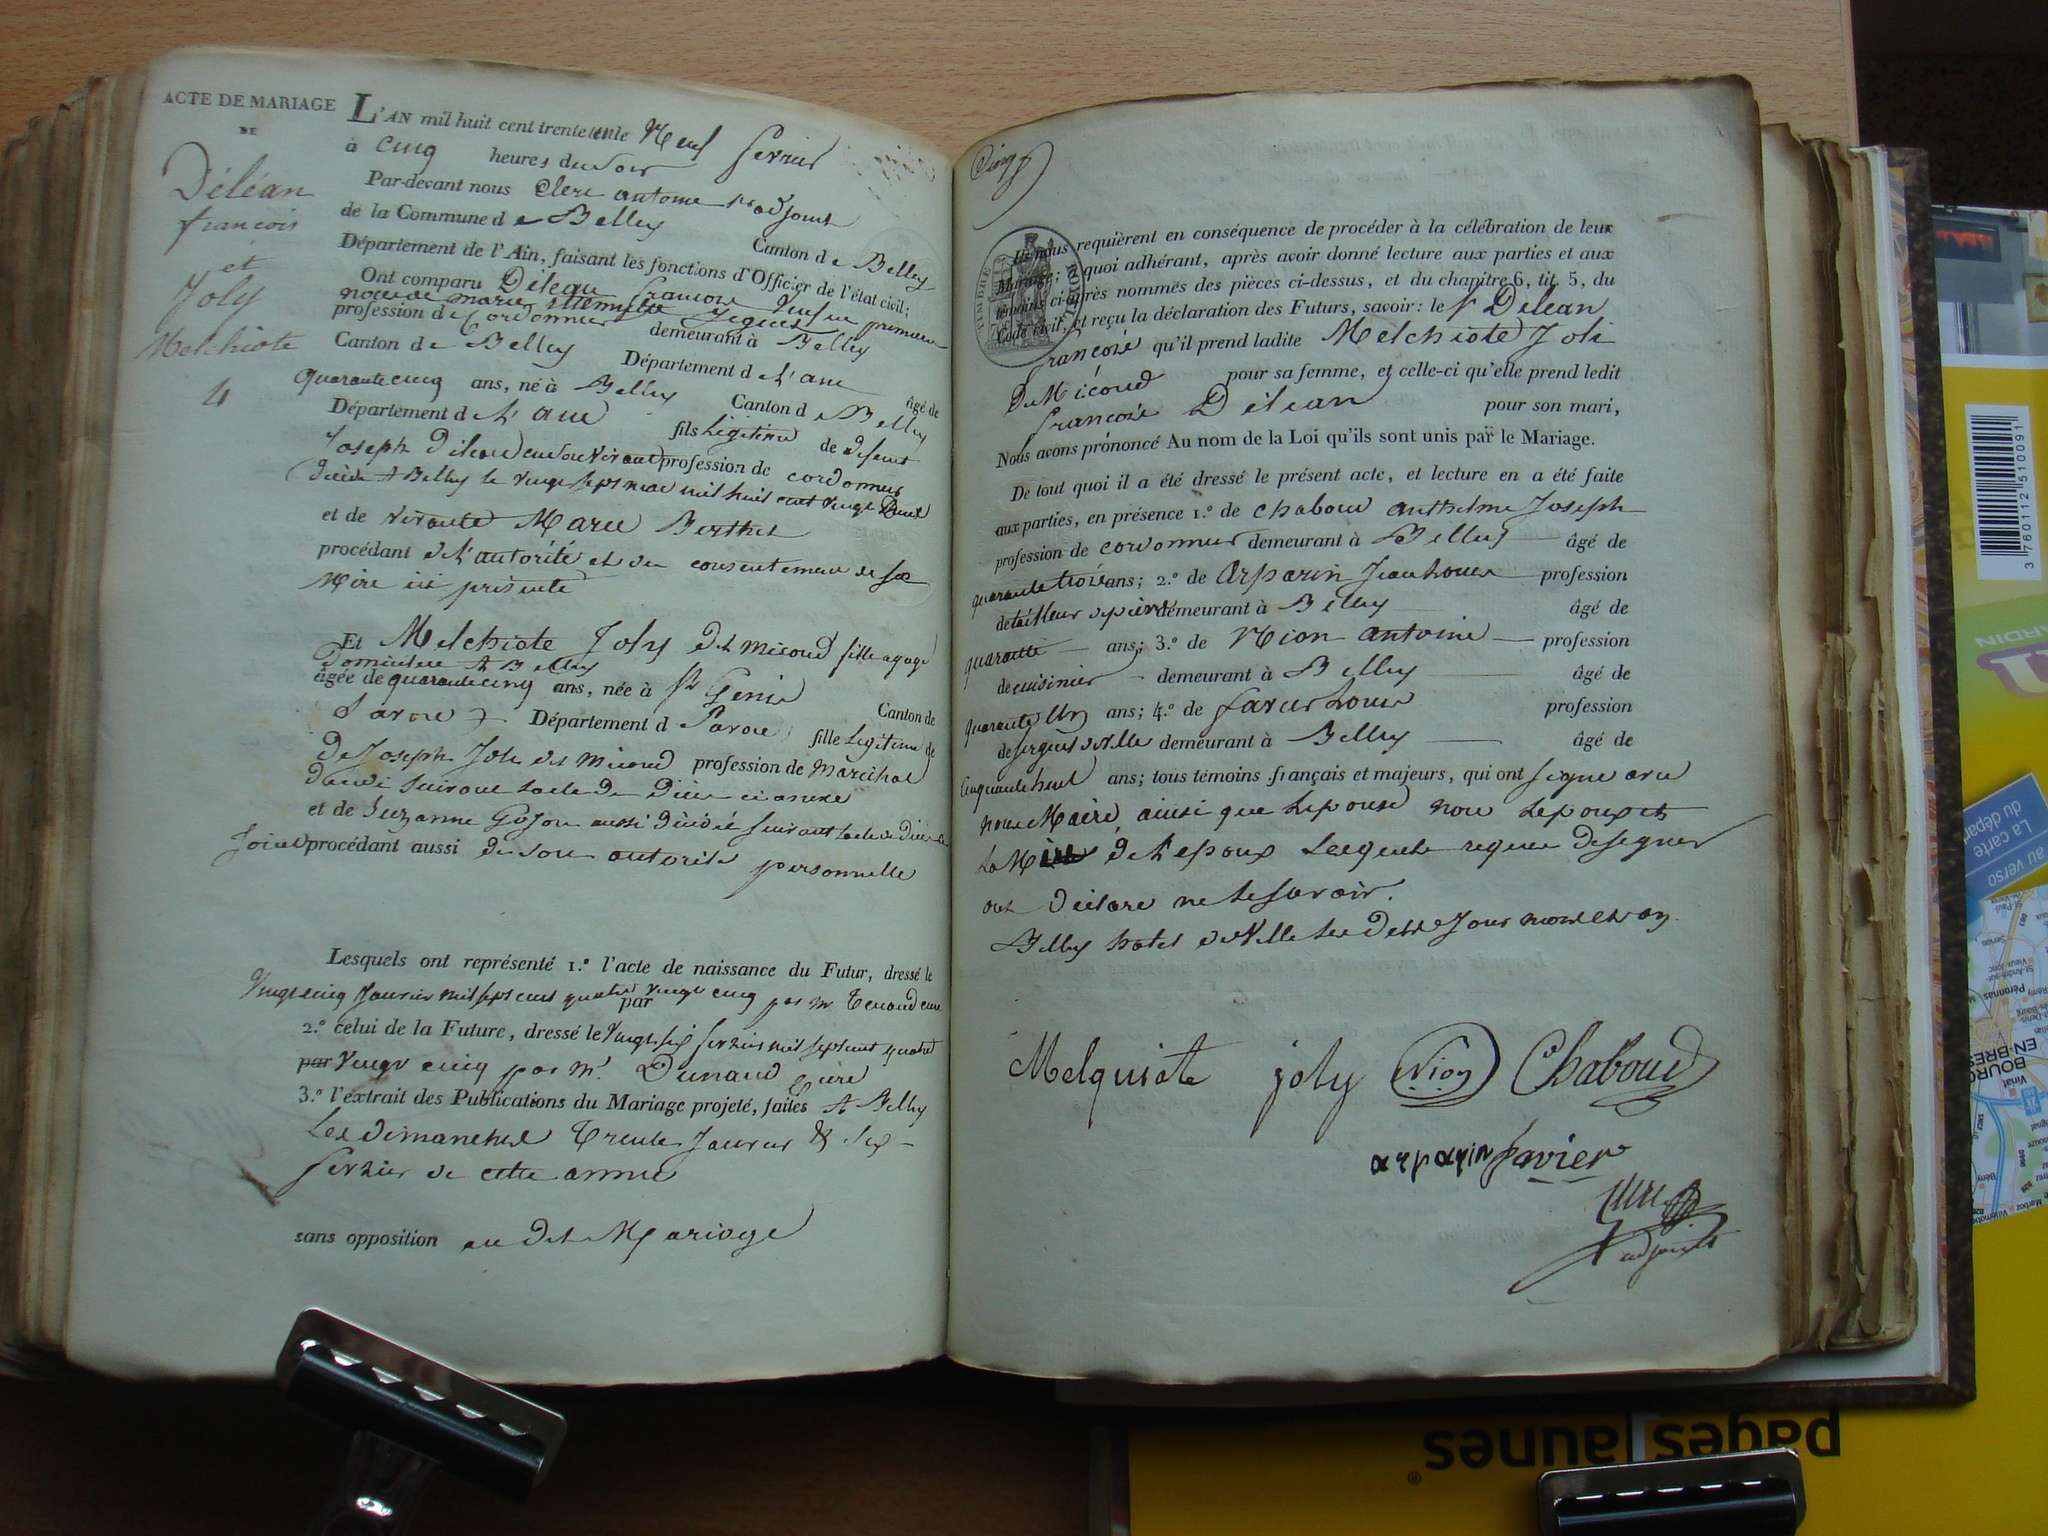 ACTE DE MARIAGE
DE
Déléan
françois
et
Joly
Melchiote
4
L'AN mil huit cent trente un le Neuf fevrier
à cinq heures du soir
Par-devant nous Clerc antoine 1er adjoint
de la Commune de Belley Canton de Belley
Département de l'Ain, faisant les fonctions d'Officier de l'état civil;
Ont comparu Délean francois veuf en premiere
noces de marie
profession de Cordonnier demeurant à Belley
Canton de Belley Département de L'ain âgé de
quarante cinq ans, né à Belley Canton de Belley
Département de L'ain fils Légitime de defunt
Joseph Délean profession de cordonnier
décédé A Belley le vingt sept mai mil huit cent vingt
et de vivante Marie Berthet
procédant de L'autorité et du consentement de sa
Mère ici présente
Et Melchiote Joly dit micoud fille agagé
Domiciliée A Belley
âgée de quarante cinq ans, née à St Genis Canton de
Savoie Département d Savoie fille Légitime de
de Joseph Joli dit micoud profession de Maréchal
décédé suivant
et de Suzanne Gojon aussi décédée suivant
Joint procédant aussi de son autorité personnelle
Lesquels ont représenté 1.º l'acte de naissance du Futur, dressé le
Vingt cinq Janvier mil sept cent quatre vingt cinq par mr curé
par
2.º celui de la Future, dressé le vingt six fevrier mil sept cent quatre
par vingt cinq par mr. Dunand Curé
3.º l'extrait des Publications du Mariage projeté, faites A Belley
Les dimanches Trente Janvier & six
fevrier de cette année
sans opposition au dit Mariage
Ils nous requièrent en conséquence de procéder à la célébration de leur
Mariage; à quoi adhérant, après avoir donné lecture aux parties et aux
témoins ci-après nommés des pièces ci-dessus, et du chapitre 6, tit. 5, du
Code civil, et reçu la déclaration des Futurs, savoir: le Sr Délean
TIMBRE ROYAL
françois qu'il prend ladite Melchiote Joli
Dit Micoud pour sa femme, et celle-ci qu'elle prend ledit
françois Délean pour son mari,
Nous avons prononcé Au nom de la Loi qu'ils sont unis par le Mariage.
De tout quoi il a été dressé le présent acte, et lecture en a été faite
aux parties, en présence 1.º de chaboud anthelme Joseph
profession de cordonnier demeurant à Belley âgé de
quarante trois ans; 2.º de Arparin Jean Louis profession
de tailleur de pierre demeurant à Belley âgé de
quarante ans; 3.º de Nion antoine profession
de cuisinier demeurant à Belley âgé de
quarante un ans; 4.º de favier Louis profession
de sergent de ville demeurant à Belley âgé de
Cinquante huit ans; tous témoins français et majeurs, qui ont signé avec
nous Maire ainsi que L'epouse non L'epoux et
La Mère de L'epoux Lesquels requis de signer
ont déclaré ne le savoir.
Belley hotel de Ville Les dits Jour mois et an
Melquiote joly Nion Chaboud
arparin favier
adjoint
3 760112 510091
La carte
du départ
au verso
Péronnas
BOURG
EN-BRES
pages jaunes
®